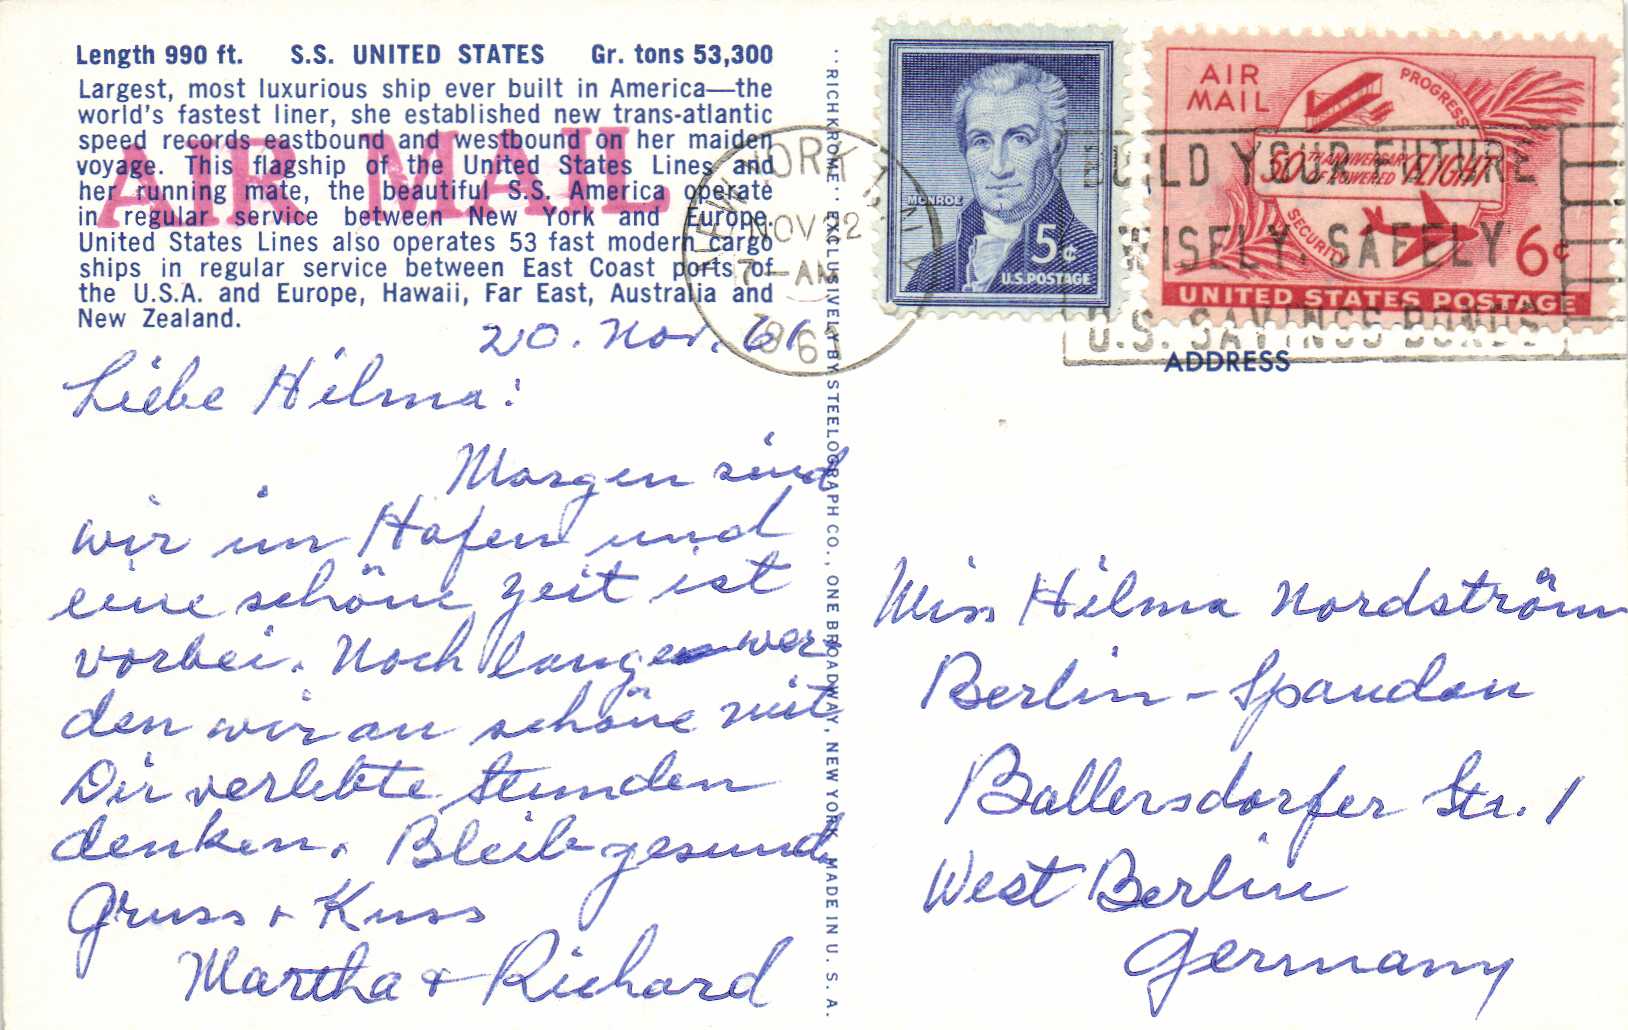 Length 990 ft. S.S. UNITED STATES Gr. tons 53,300
Largest, most luxurious ship ever built in America—the
world's fastest liner, she established new trans-atlantic
speed records eastbound and westbound on her maiden
voyage. This flagship of the United States Lines and
her running mate, the beautiful S.S. America operate
in regular service between New York and Europe.
United States Lines also operates 53 fast modern cargo
ships in regular service between East Coast ports of
the U.S.A. and Europe, Hawaii, Far East, Australia and
New Zealand.
AIR MAIL
20. Nov. 61
Liebe Hilma:
Morgen sind
wir im Hafen und
eine schöne Zeit ist
vorbei. Noch lange wer
den wir an schöne mit
Dir verlebte Stunden
denken. Bleib gesund
Gruss + Kuss
Martha + Richard
RICHKROME EXCLUSIVELY BY STEELOGRAPH CO., ONE BROADWAY, NEW YORK MADE IN U.S.A.
NEW YORK, N.Y.
NOV 22
7-AM
1961
MONROE
5¢
U.S. POSTAGE
AIR
MAIL
PROGRESS
50TH ANNIVERSARY OF POWERED FLIGHT
SECURITY
6¢
UNITED STATES POSTAGE
BUILD YOUR FUTURE
WISELY, SAFELY
U.S. SAVINGS BONDS
ADDRESS
Miss Hilma Nordström
Berlin - Spandau
Ballersdorfer Str. 1
West Berlin
Germany